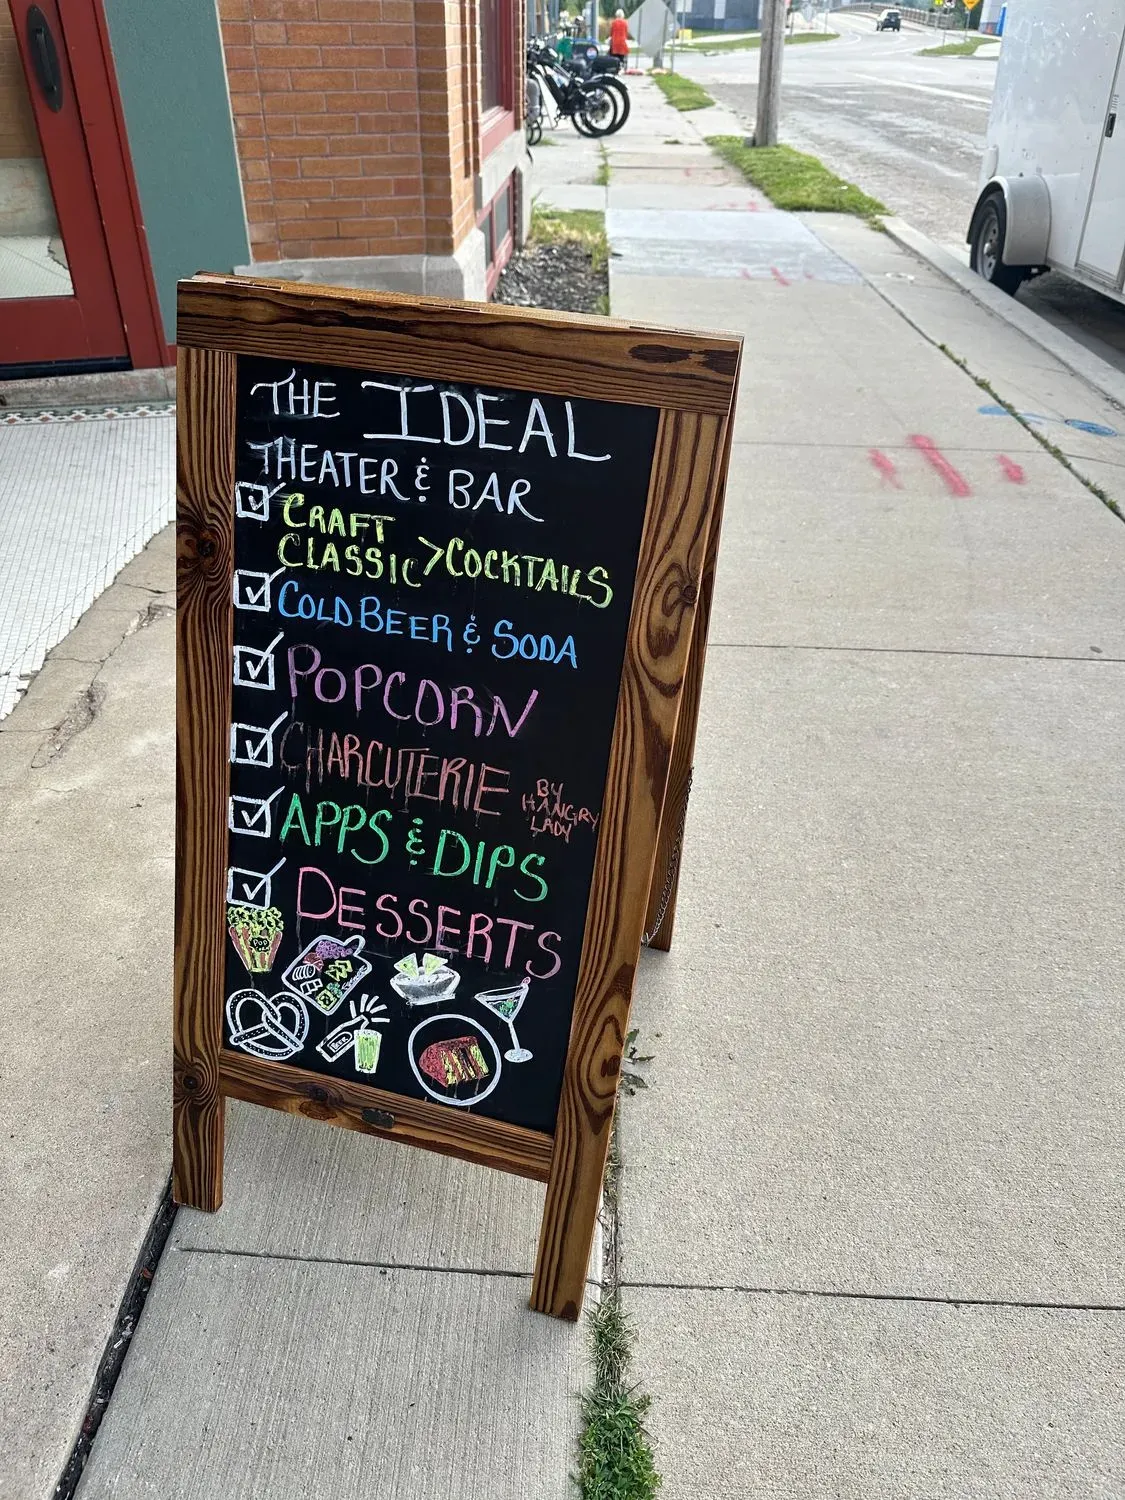 THE IDEAL
THEATER & BAR
CRAFT
CLASSIC >COCKTAILS
COLD BEER & SODA
POPCORN
CHARCUTERIE BY
HANGRY
LADY
APPS & DIPS
DESSERTS
POP
BEER